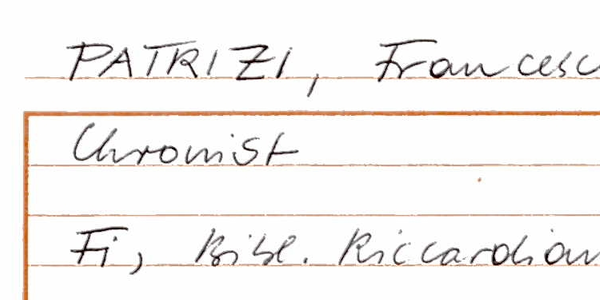 PATRIZI, Francesc
Chronist
Fi, Bibl. Riccardian